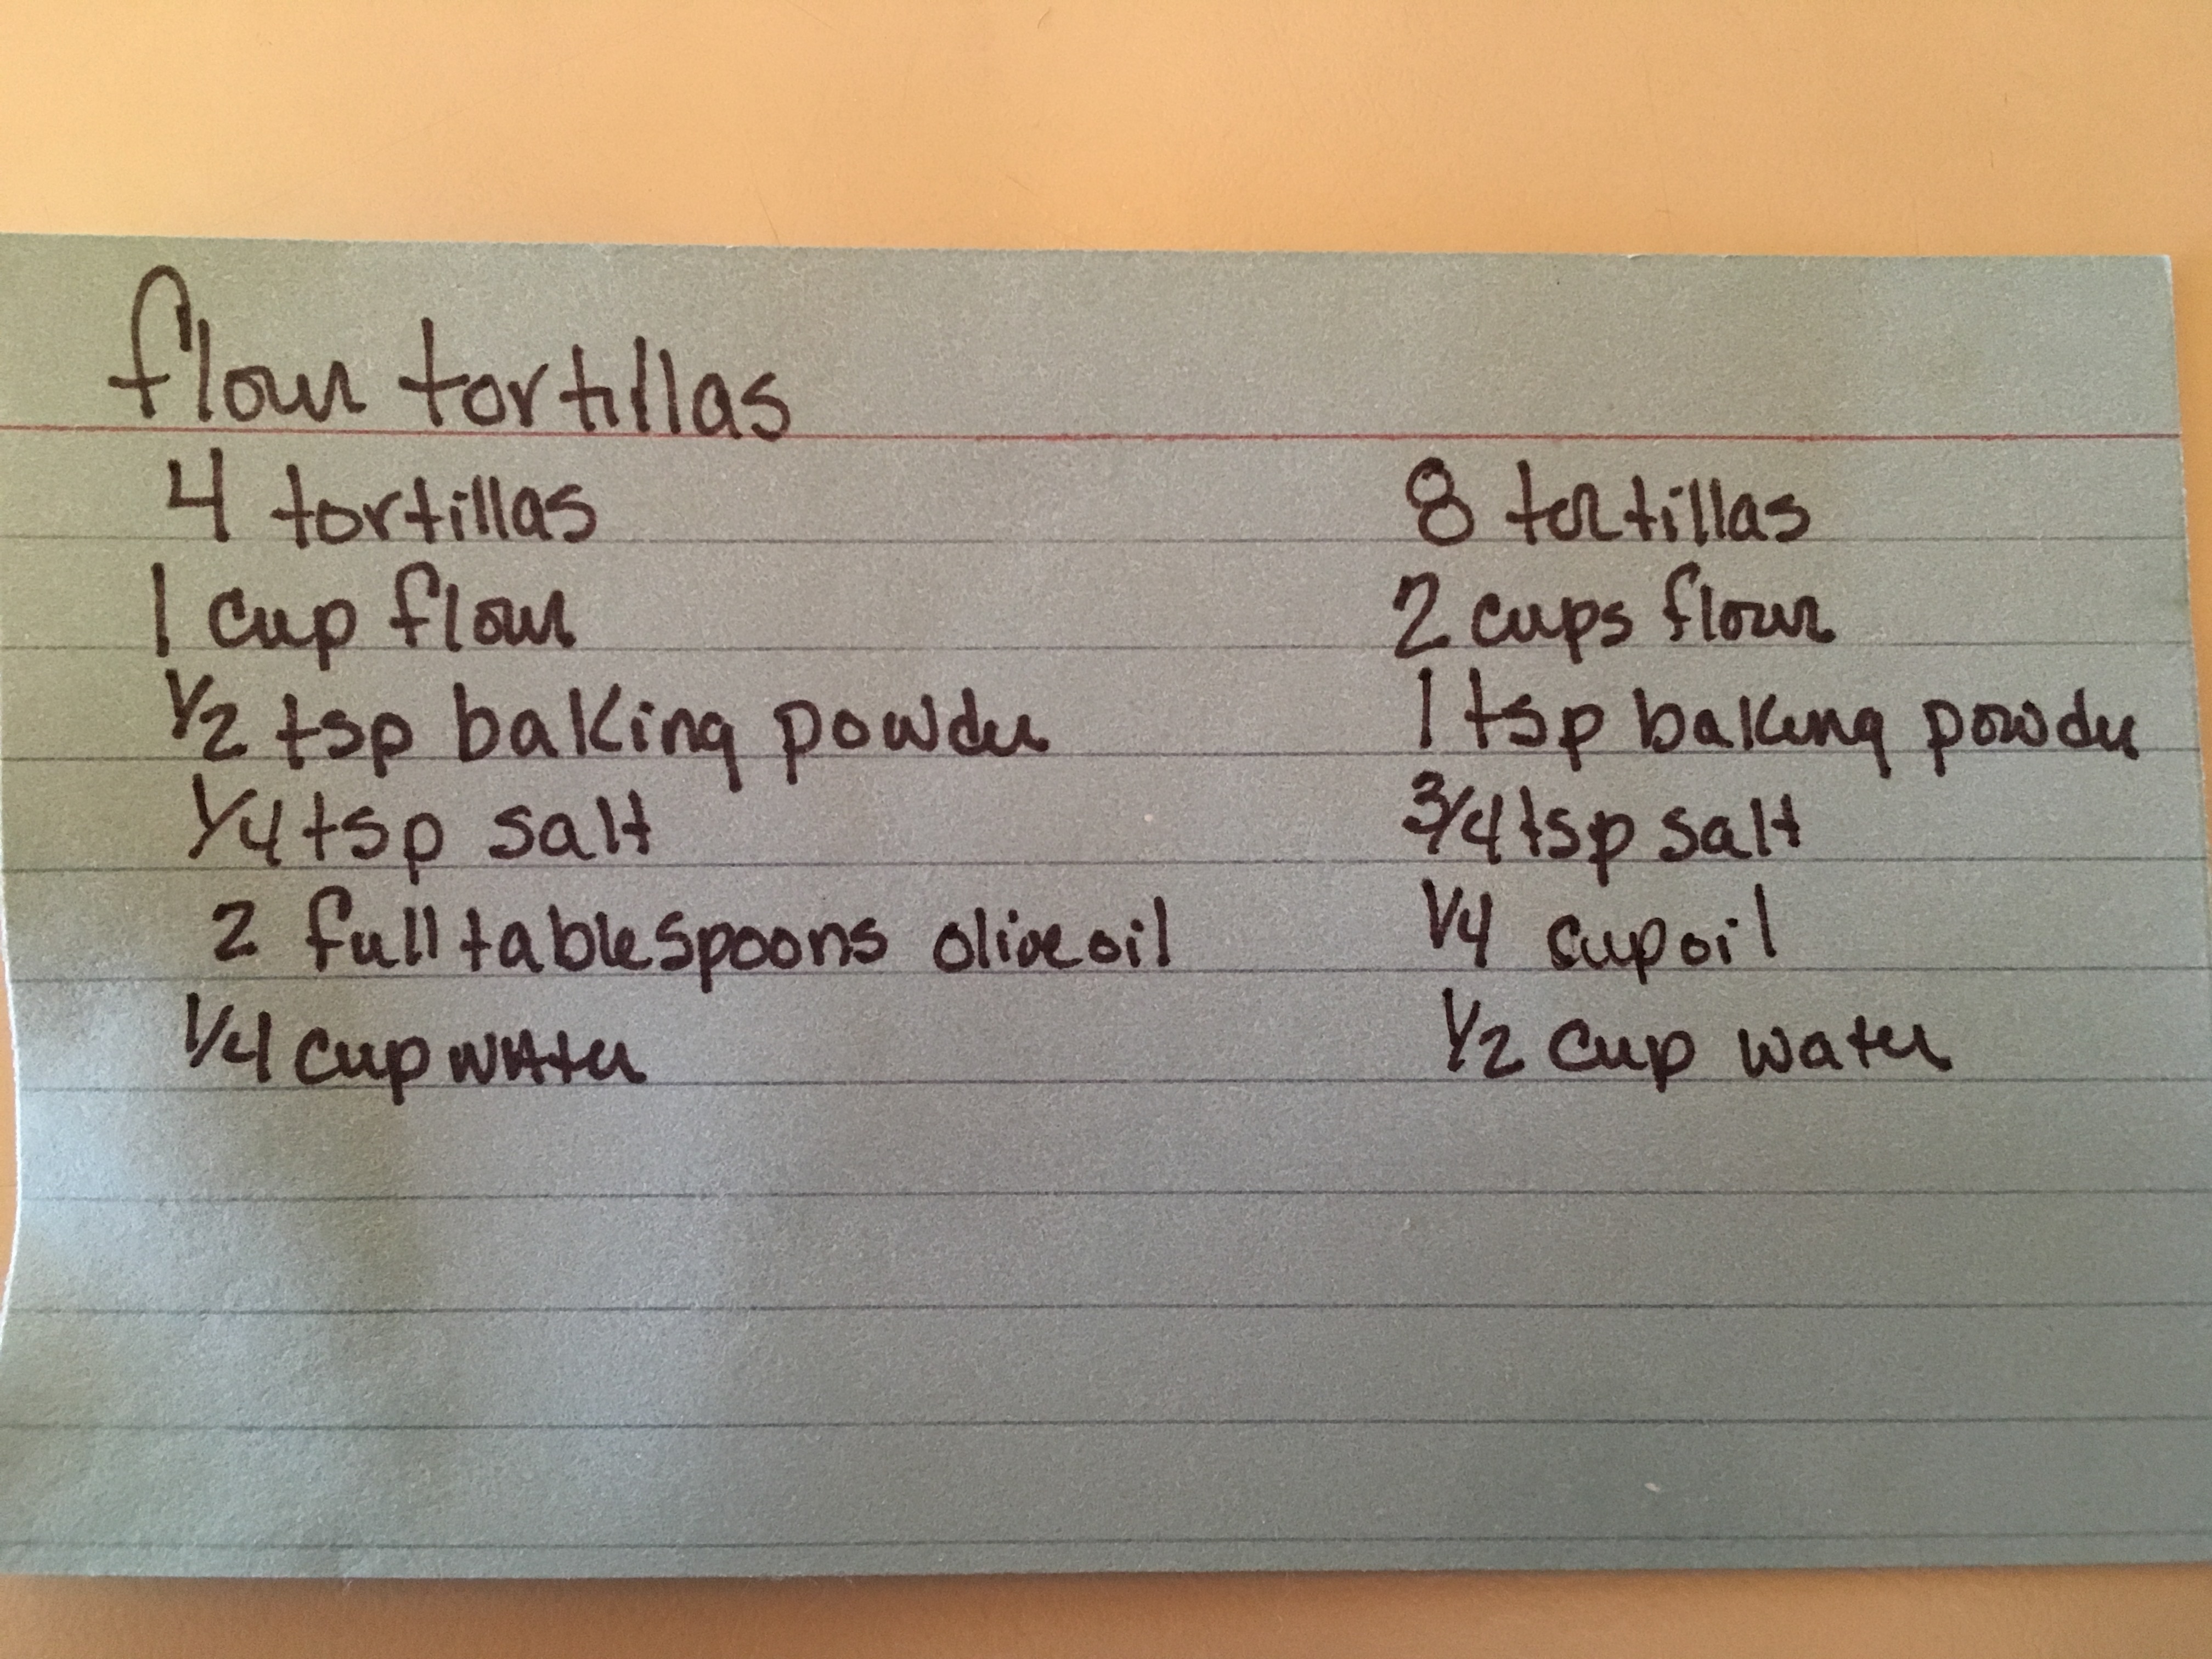 flour tortillas
4 tortillas
1 cup flour
1/2 tsp baking powder
1/4 tsp salt
2 full tablespoons olive oil
1/4 cup water
8 tortillas
2 cups flour
1 tsp baking powder
3/4 tsp salt
1/4 cup oil
1/2 cup water